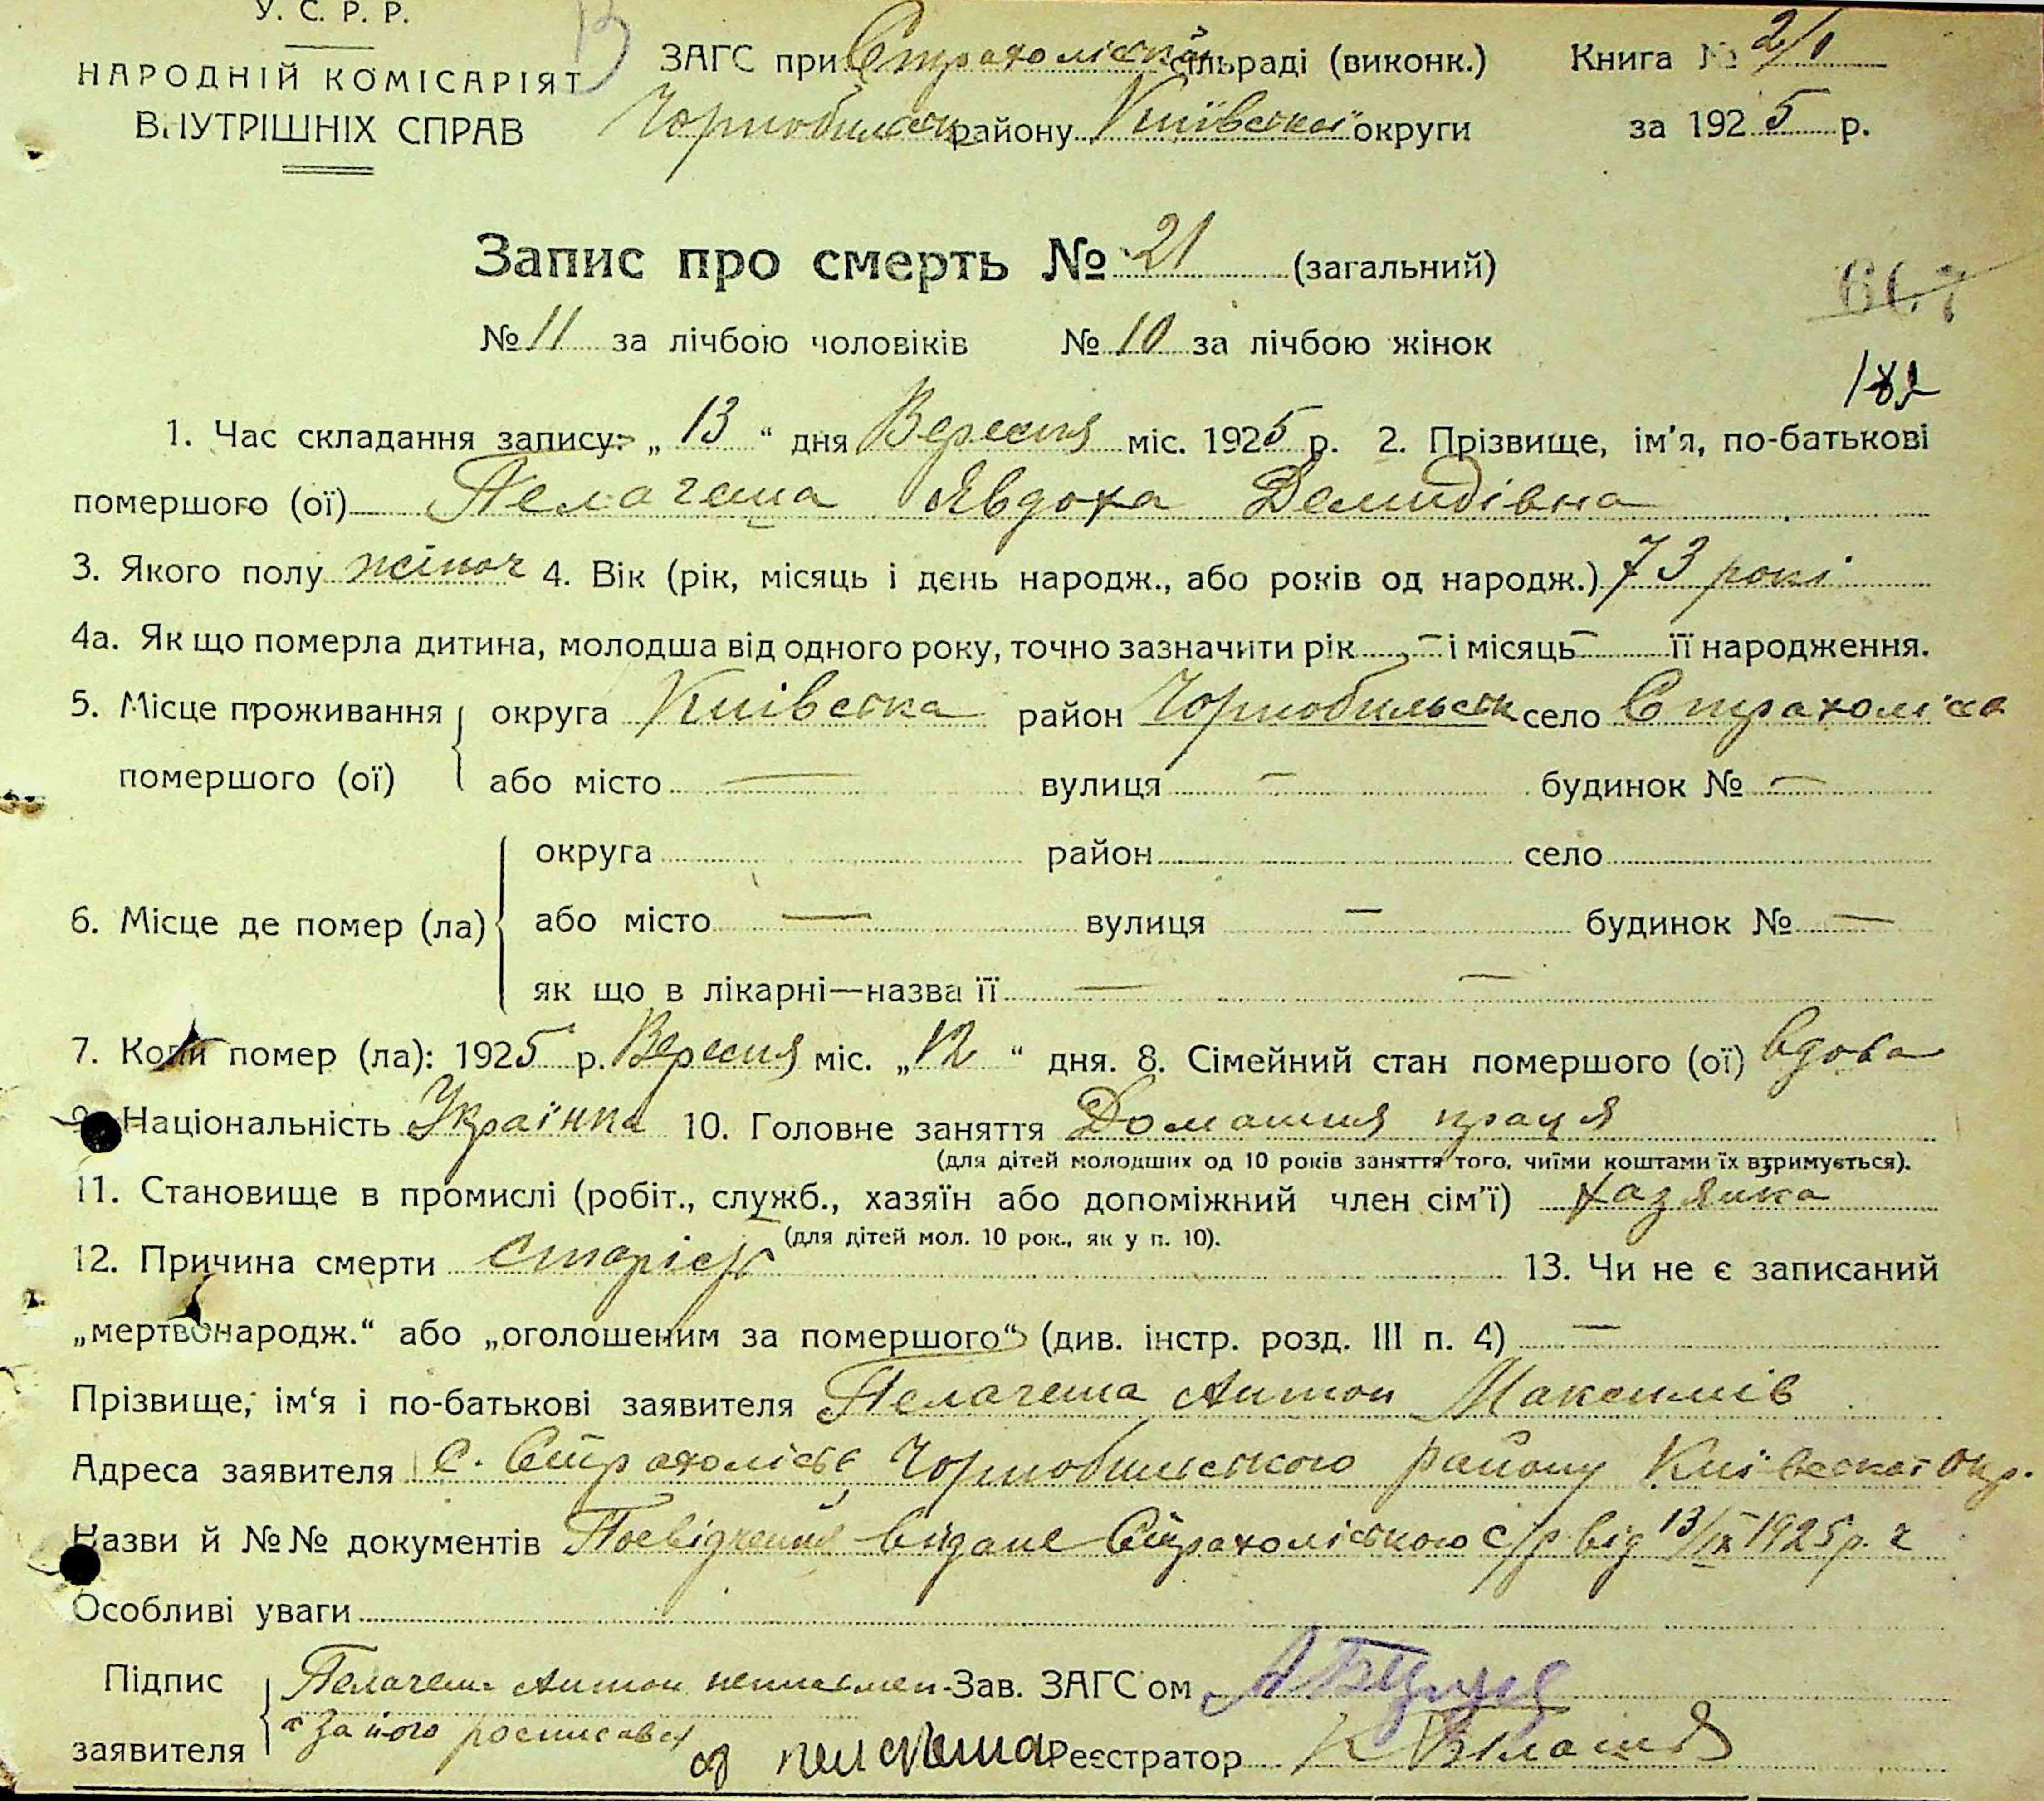 У. С. Р. Р.
НАРОДНІЙ КОМІСАРІЯТ
ВНУТРІШНІХ СПРАВ
ЗАГС при Страхоліськ. сільраді (виконк.)
Чорнобильськ району Київської округи
Книга № 2/1
за 1925 р.
Запис про смерть № 21 (загальний)
№ 11 за лічбою чоловіків № 10 за лічбою жінок
182
1. Час складання запису: „ 13 “ дня Вересня міс. 1925 р. 2. Прізвище, ім’я, по-батькові
помершого (ої) Пелагеша Явдоха Демидівна
3. Якого полу жіноч 4. Вік (рік, місяць і день народж., або років од народж.) 73 роки
4а. Як що померла дитина, молодша від одного року, точно зазначити рік – і місяць – її народження.
5. Місце проживання округа Київська район Чорнобильськ село Страхолісся
помершого (ої) або місто — вулиця – будинок № —
округа район село
6. Місце де помер (ла) або місто — вулиця — будинок № —
як що в лікарні—назва її — —
7. Коли помер (ла): 1925 р. Вересня міс. „ 12 “ дня. 8. Сімейний стан помершого (ої) вдова
9. Національність Українка 10. Головне заняття Домашня праця
(для дітей молодших од 10 років заняття того, чиїми коштами їх втримується).
11. Становище в промислі (робіт., служб., хазяїн або допоміжний член сім’ї) хазяйка
(для дітей мол. 10 рок., як у п. 10).
12. Причина смерти старість 13. Чи не є записаний
„мертвонародж.“ або „оголошеним за помершого“ (див. інстр. розд. III п. 4) —
Прізвище, ім‘я і по-батькові заявителя Пелагеша Антон Максимів
Адреса заявителя с. Страхолісся Чорнобильського району Київської окр.
Назви й №№ документів Посвідчення видане Страхоліською с/р від 13/IX 1925 р.
Особливі уваги
Підпис Пелагеша Антон неписьмен- Зав. ЗАГС‘ом
заявителя за нього росписався Реєстратор